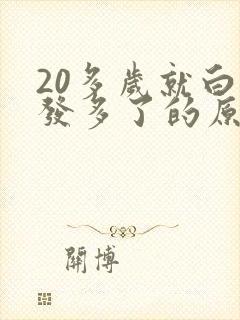 20多歲就白
發多了的原
關博